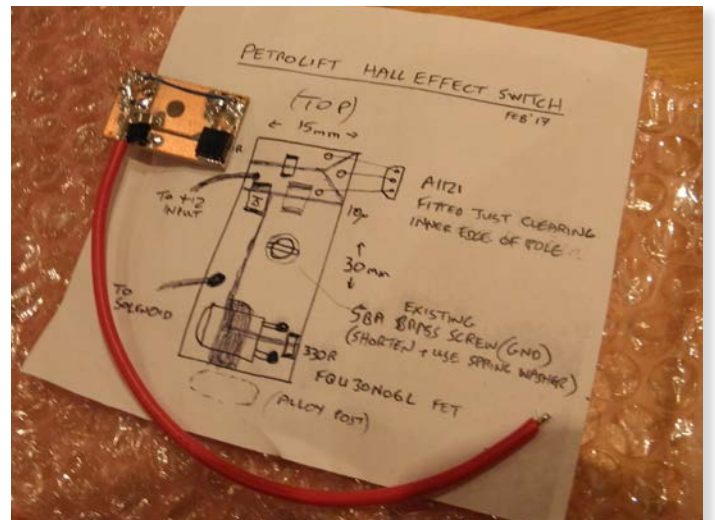 PETROLIFT HALL EFFECT SWITCH
FEB '17
(TOP)
15mm
A1121
FITTED JUST CLEARING
INNER EDGE OF POLE
TO +12
INPUT
10µ
30mm
TO
SOLENOID
EXISTING
5BA BRASS SCREW (GND)
(SHORTEN + USE SPRING WASHER)
330R
FQU30N06L FET
(ALLOY POST)